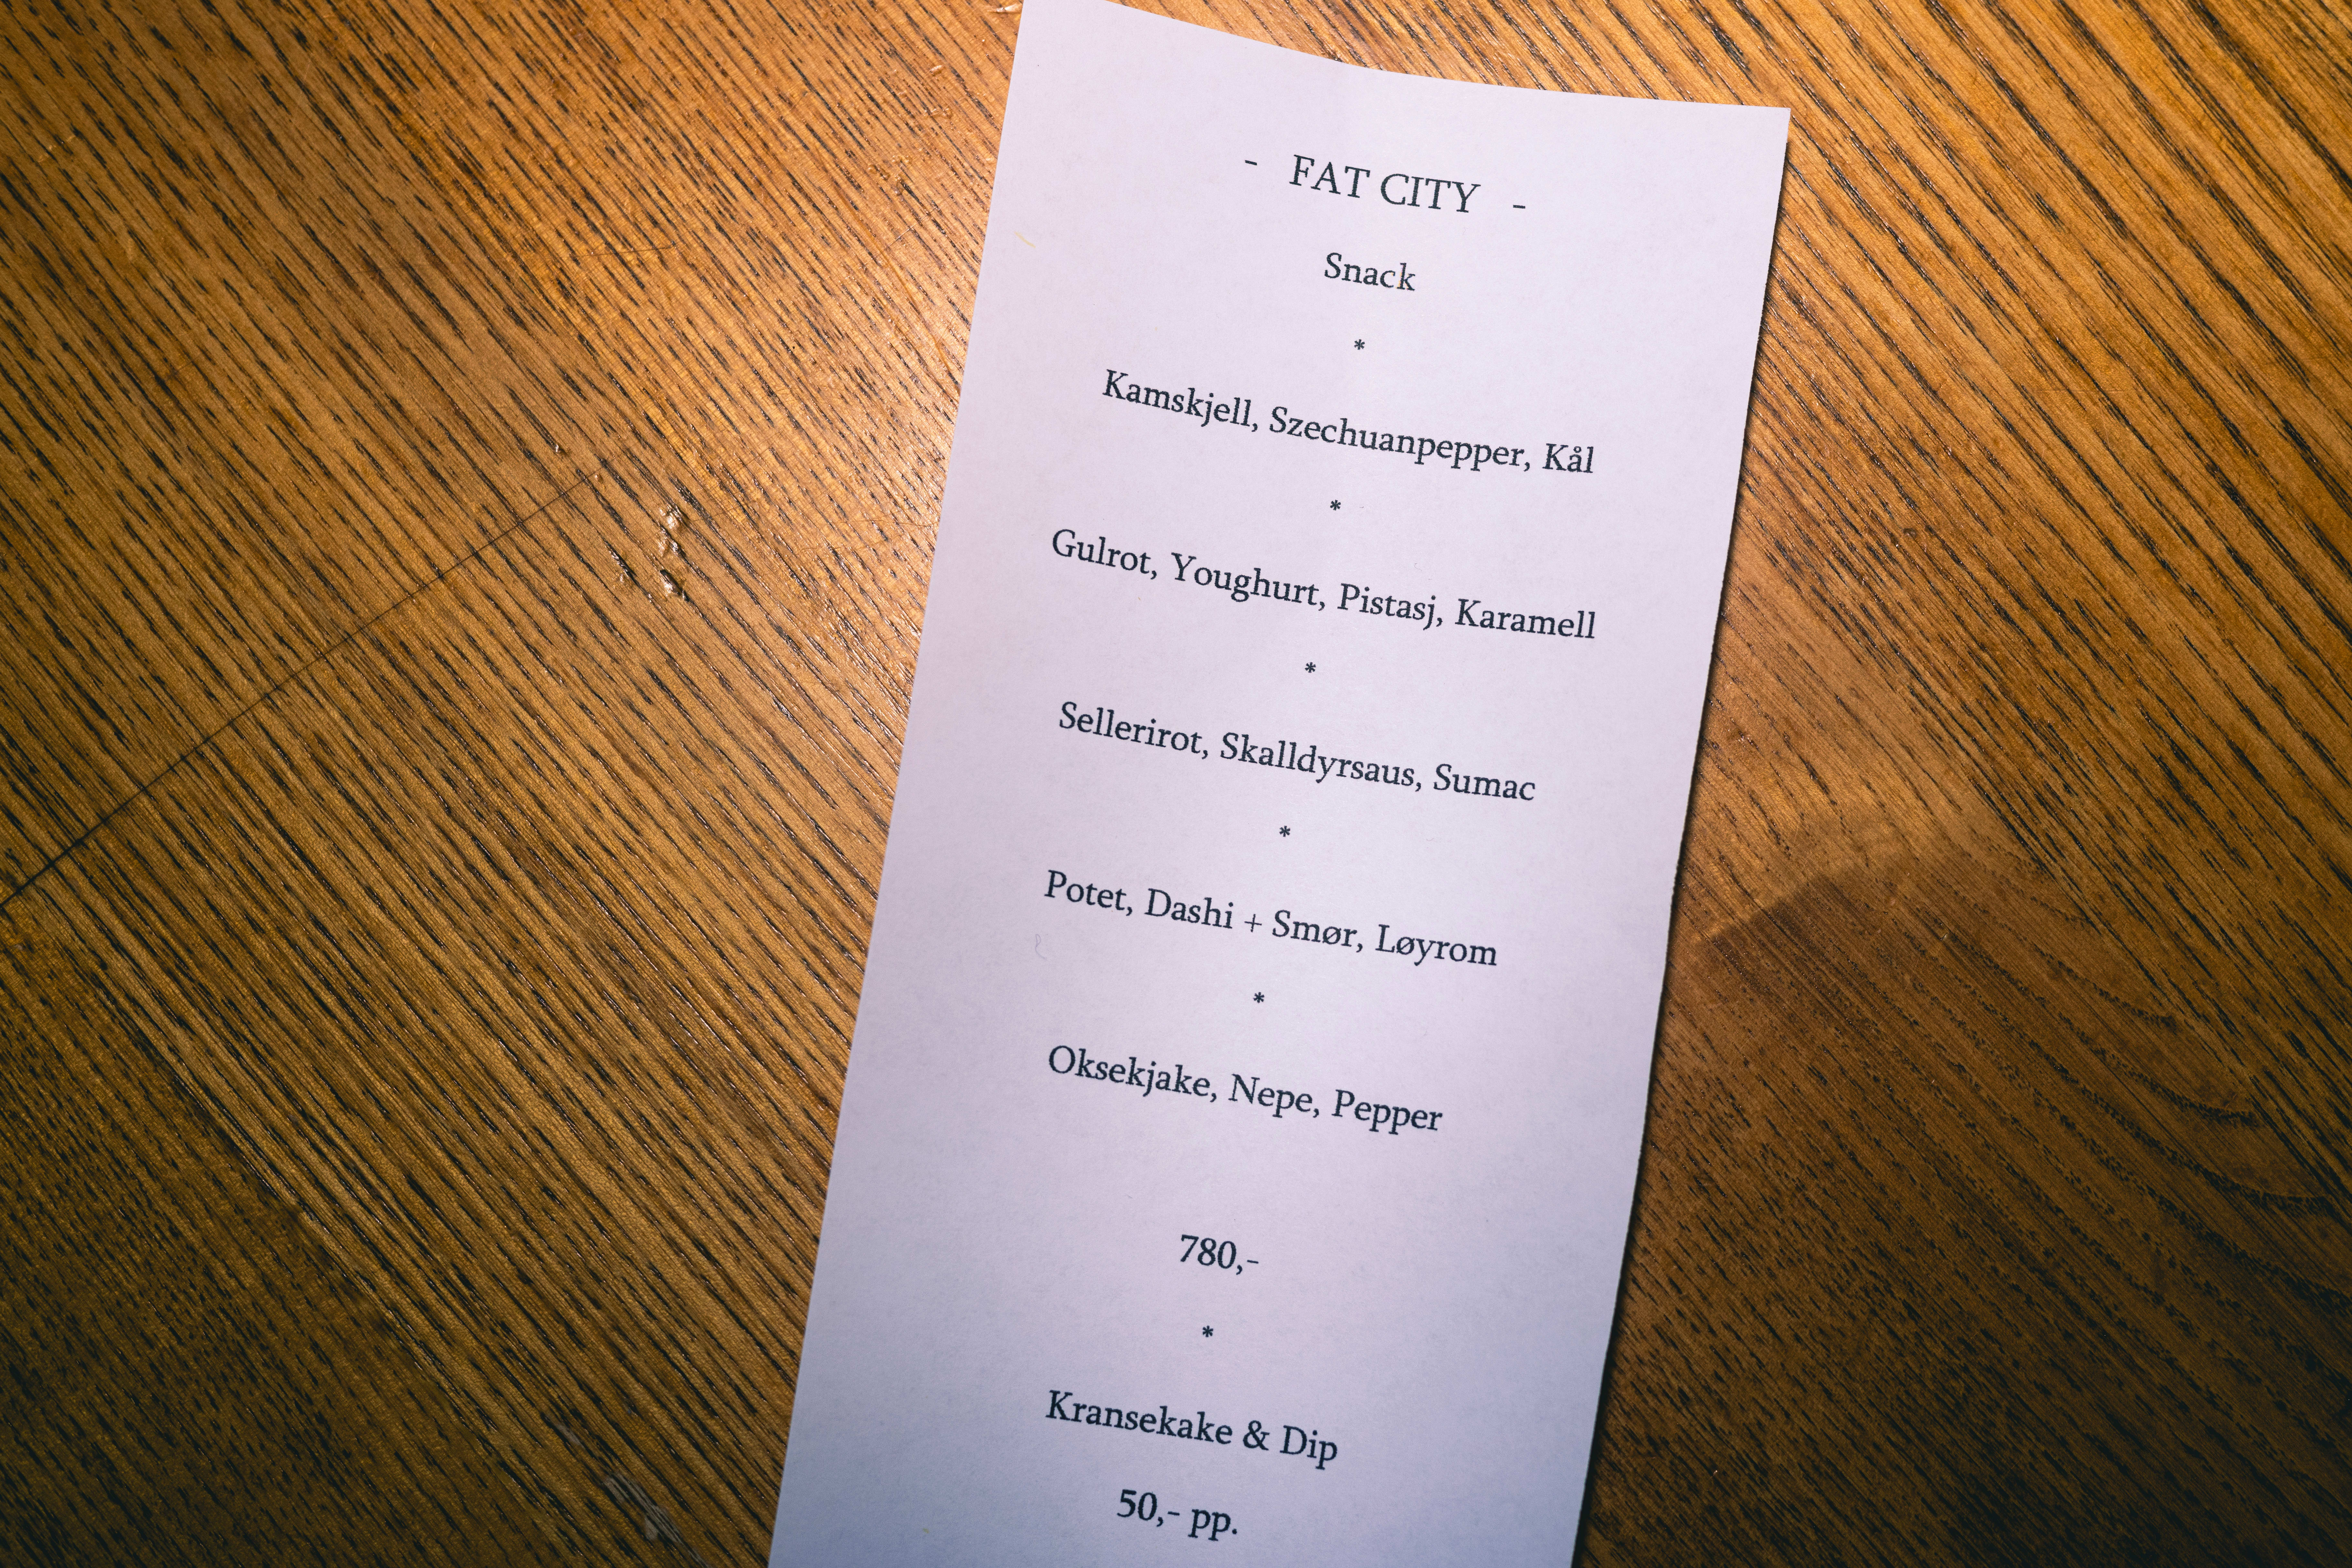 - FAT CITY -
Snack
*
Kamskjell, Szechuanpepper, Kål
*
Gulrot, Youghurt, Pistasj, Karamell
*
Sellerirot, Skalldyrsaus, Sumac
*
Potet, Dashi + Smør, Løyrom
*
Oksekjake, Nepe, Pepper
780,-
*
Kransekake & Dip
50,- pp.